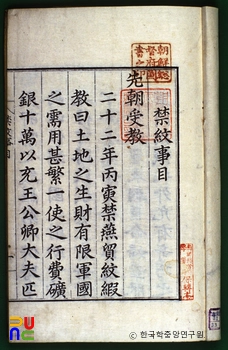 禁紋事目
先朝受教
二十二年丙寅禁燕貿紋緞
教曰土地之生財有限軍國
之需用甚繁一使之行費礦
銀十萬以充王公卿大夫匹
朝鮮總
督府圖
書之印
ⓒ 한국학중앙연구원